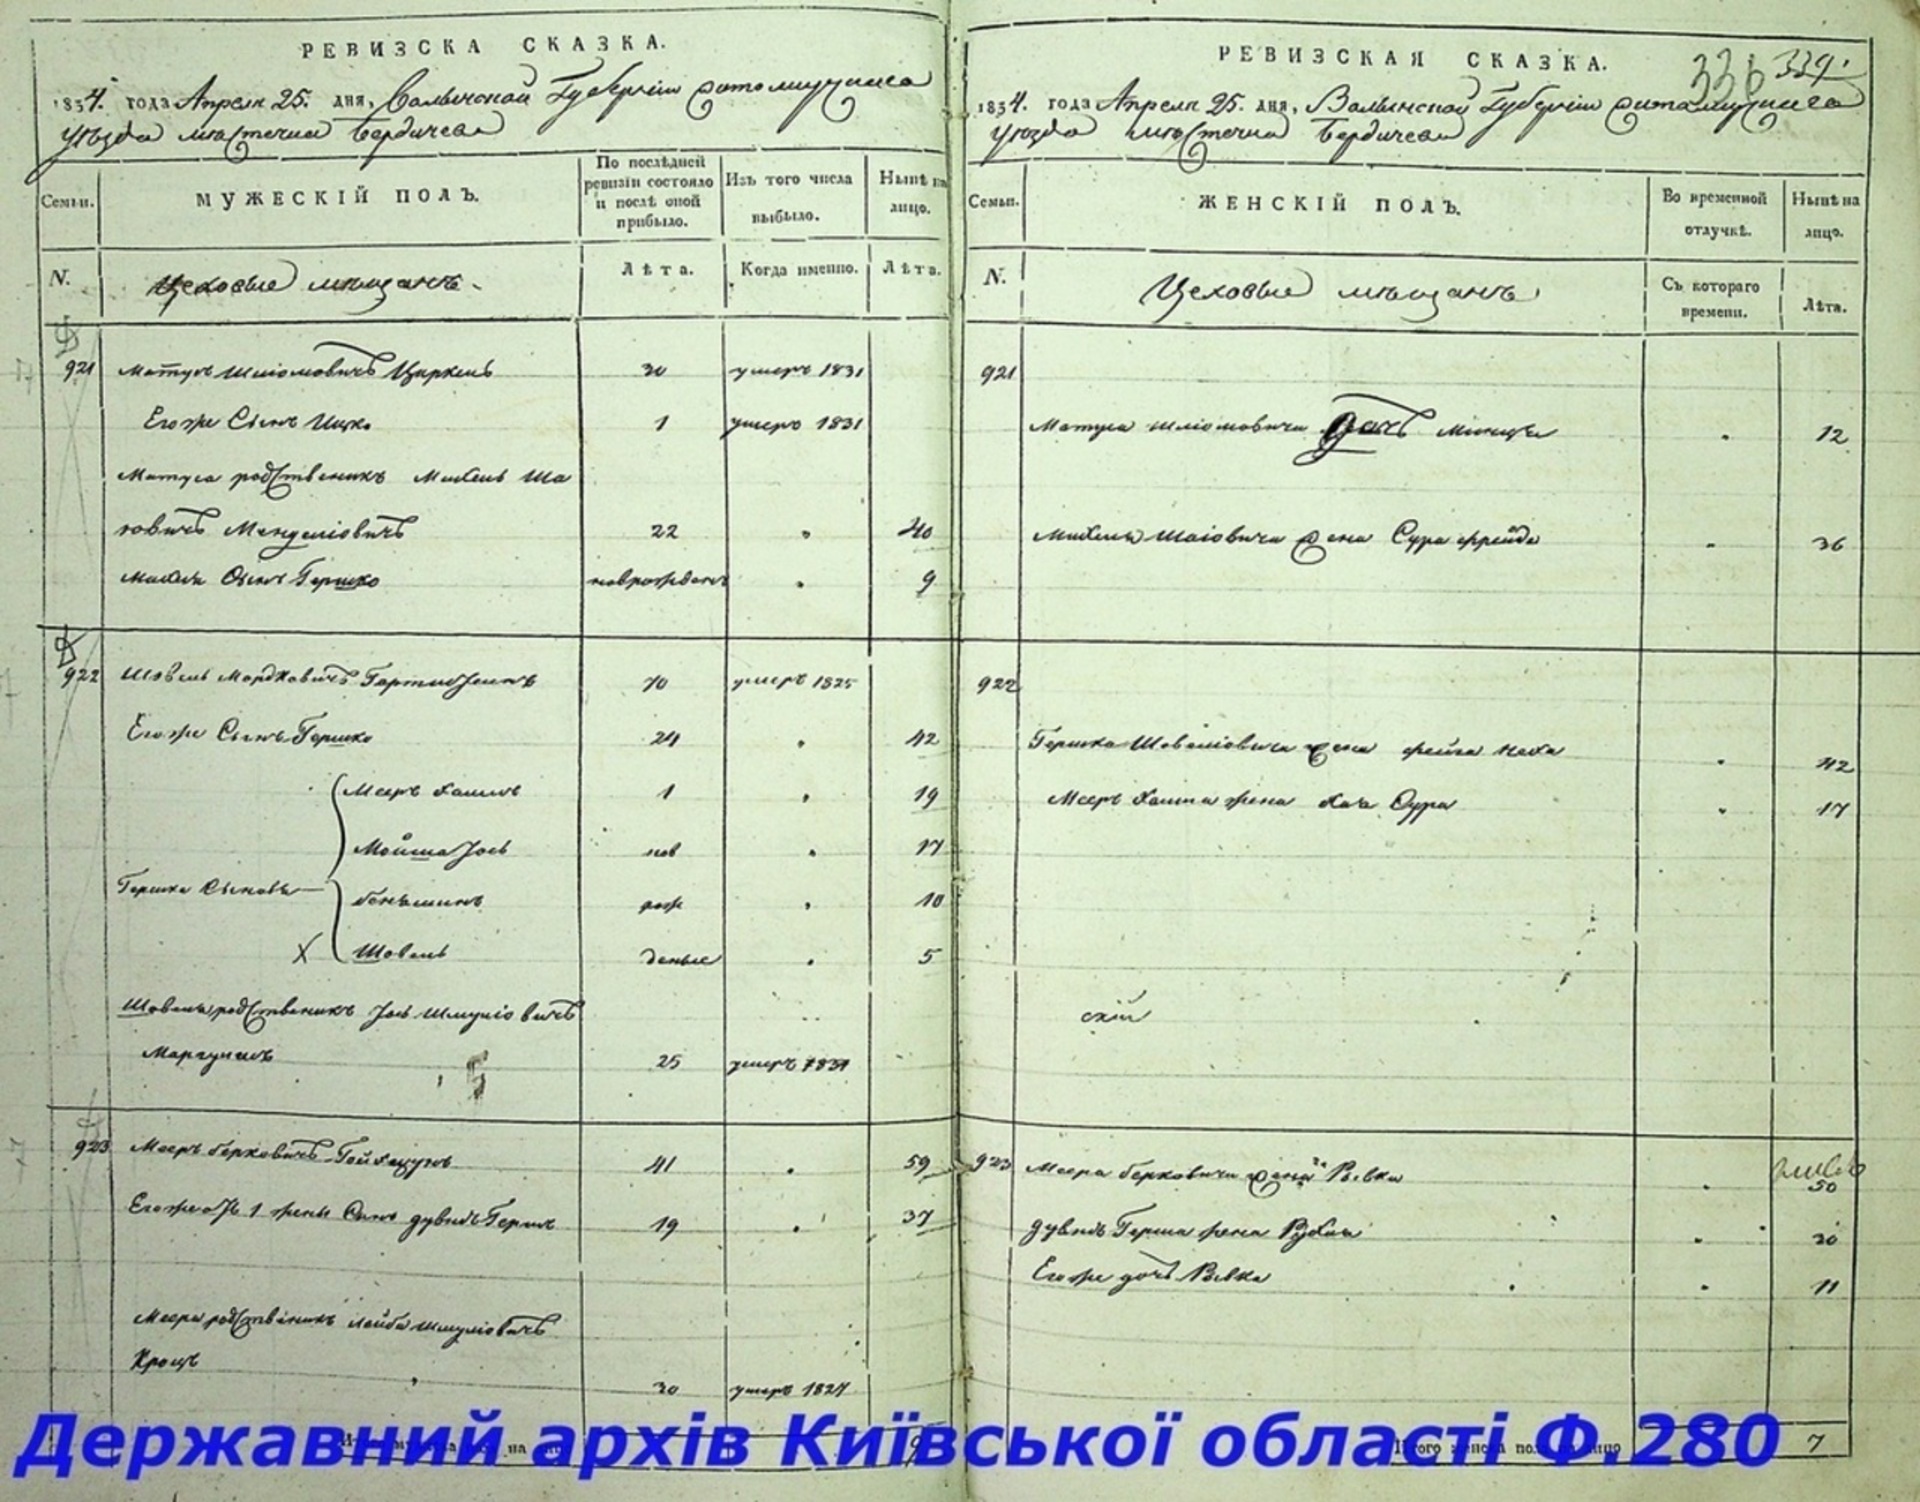 РЕВИЗСКА СКАЗКА.
1834. года Апреля 25. дня, Волынской Губернии Житомирскаго
уезда местечка Бердичева
Семьи.
МУЖЕСКІЙ ПОЛЪ.
По послѣдней ревизіи состояло и послѣ оной прибыло.
Изъ того числа выбыло.
Нынѣ на лицо.
N.
Цеховые мещане
Лѣта.
Когда именно.
Лѣта.
921 Матусъ Шліомовичъ 30 умеръ 1831
Егоже Сынъ Ицко 1 умеръ 1831
Матуса родственикъ Михель Ша
Менделіовичъ 22 40
Михеля Сынъ Гершко новрожденъ 9
922 Шовель Мордковичъ 70 умеръ 1825
Егоже Сынъ Гершко 24 42
Мееръ Хаимъ 1 19
Мойша Іось нов 17
Гершка Сыновья
беньяминъ рож 10
Х Шовель деные 5
Шовеля родственикъ Іось Шмуліовичъ
25 умеръ 1831
923 Мееръ берковичъ 41 59
Егоже отъ 1 жены Сынъ дувидъ Гершъ 19 37
Меера родственикъ лейба Шмуліовичъ
Кроцъ
30 умеръ 1827
РЕВИЗСКАЯ СКАЗКА.
336 339.
1834. года Апреля 25. дня, Волынской Губернии Житомирскаго
уезда местечка Бердичева
Семьи.
ЖЕНСКІЙ ПОЛЪ.
Во временной отлучкѣ.
Нынѣ на лицо.
N.
Цеховые мещане
Съ котораго времени.
Лѣта.
921
Матуса Шліомовича дочь 12
Михеля жена Сура фрейда 36
922
Гершка Шовеліовича жена фейга 42
Мееръ Хаима жена Хая Сура 17
скій
923 Меера берковича жена Ривка 50
дувидъ Герша жена Рухля 30
Егоже дочь Ривка 11
Итого женска пола на лицо 7
Державний архів Київської області Ф.280